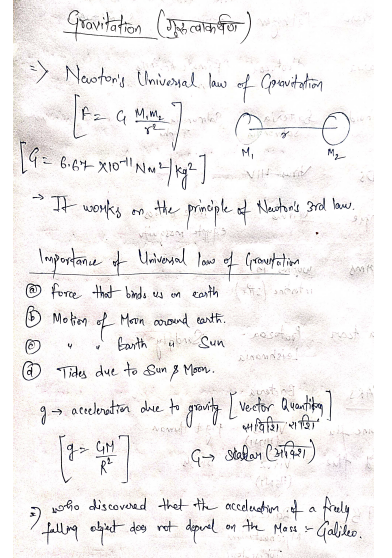 Gravitation (गुरुत्वाकर्षण)
=> Newton's Universal law of Gravitation
[F = G M₁m₂/r²] r
M₁ M₂
[G = 6.67 ×10⁻¹¹ Nm²/kg²]
→ It works on the principle of Newton's 3rd law.
Importance of Universal law of Gravitation
ⓐ force that binds us on earth
ⓑ Motion of Moon around earth.
ⓒ " " Earth " Sun
ⓓ Tides due to Sun & Moon.
g → acceleration due to gravity [Vector Quantity
राशि]
[g = GM/R²] G → scalar (अदिश)
=) who discovered that the acceleration of a freely
falling object does not depend on the Mass :- Galileo.